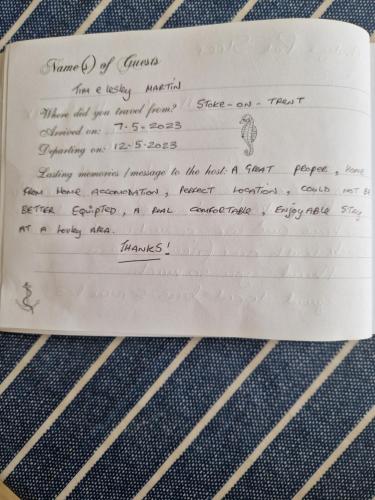 Name(s) of Guests
Tim & Lesley MARTIN
Where did you travel from? STOKE-ON-TRENT
Arrived on: 7-5-2023
Departing on: 12-5-2023
Lasting memories / message to the host: A GREAT PROPER, HOME
FROM HOME ACCOMODATION, PERFECT LOCATION, COULD NOT BE
BETTER EQUIPTED, A REAL COMFORTABLE, ENJOYABLE STAY
AT A lovley AREA.
THANKS!